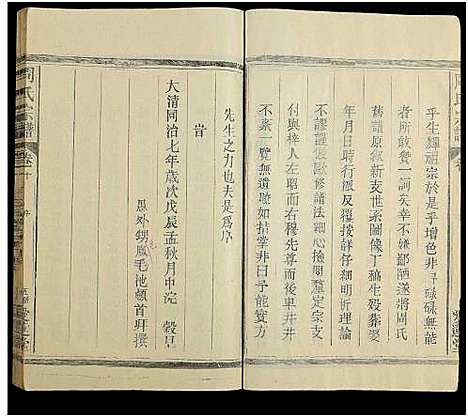 乎生輝祖宗於是乎增色非予碌碌無能
者所敢贊一詞矣幸不嫌鄙陋遂將周氏
舊譜原叙新支世系圖像丁稿生殁葬娶
年月日時行派及履按詳仔細明晰理論
不謬謹依歐修譜法細心撿閱釐定宗支
付與梓人左昭而右穆先尊而後卑井井
不紊一覽無遺燎如掌非曰予能實方
先生之力也夫是為序
旹
大清同治七年歲次戊辰孟秋月中浣 穀旦
愚外甥鳳毛池頓首拜撰
周氏宗譜
卷